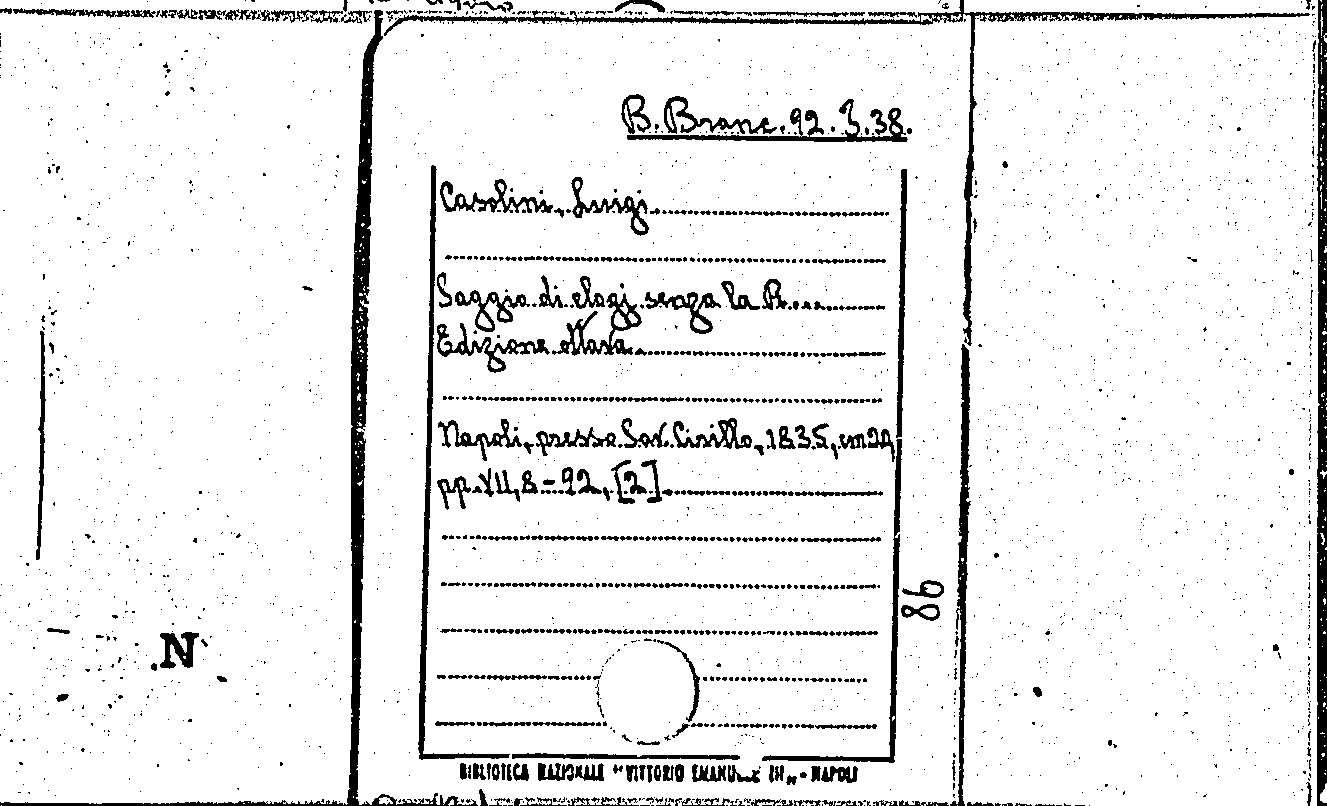 B. Branc. 92. J. 38.
Casolini, Luigi.
Saggio di elogi senza la R....
Edizione ottava.
Napoli, presso Sav. Cirillo, 1835, cm 22,
pp. VII, 8-92, [2].
86
N
BIBLIOTECA NAZIONALE "VITTORIO EMANUELE III" - NAPOLI